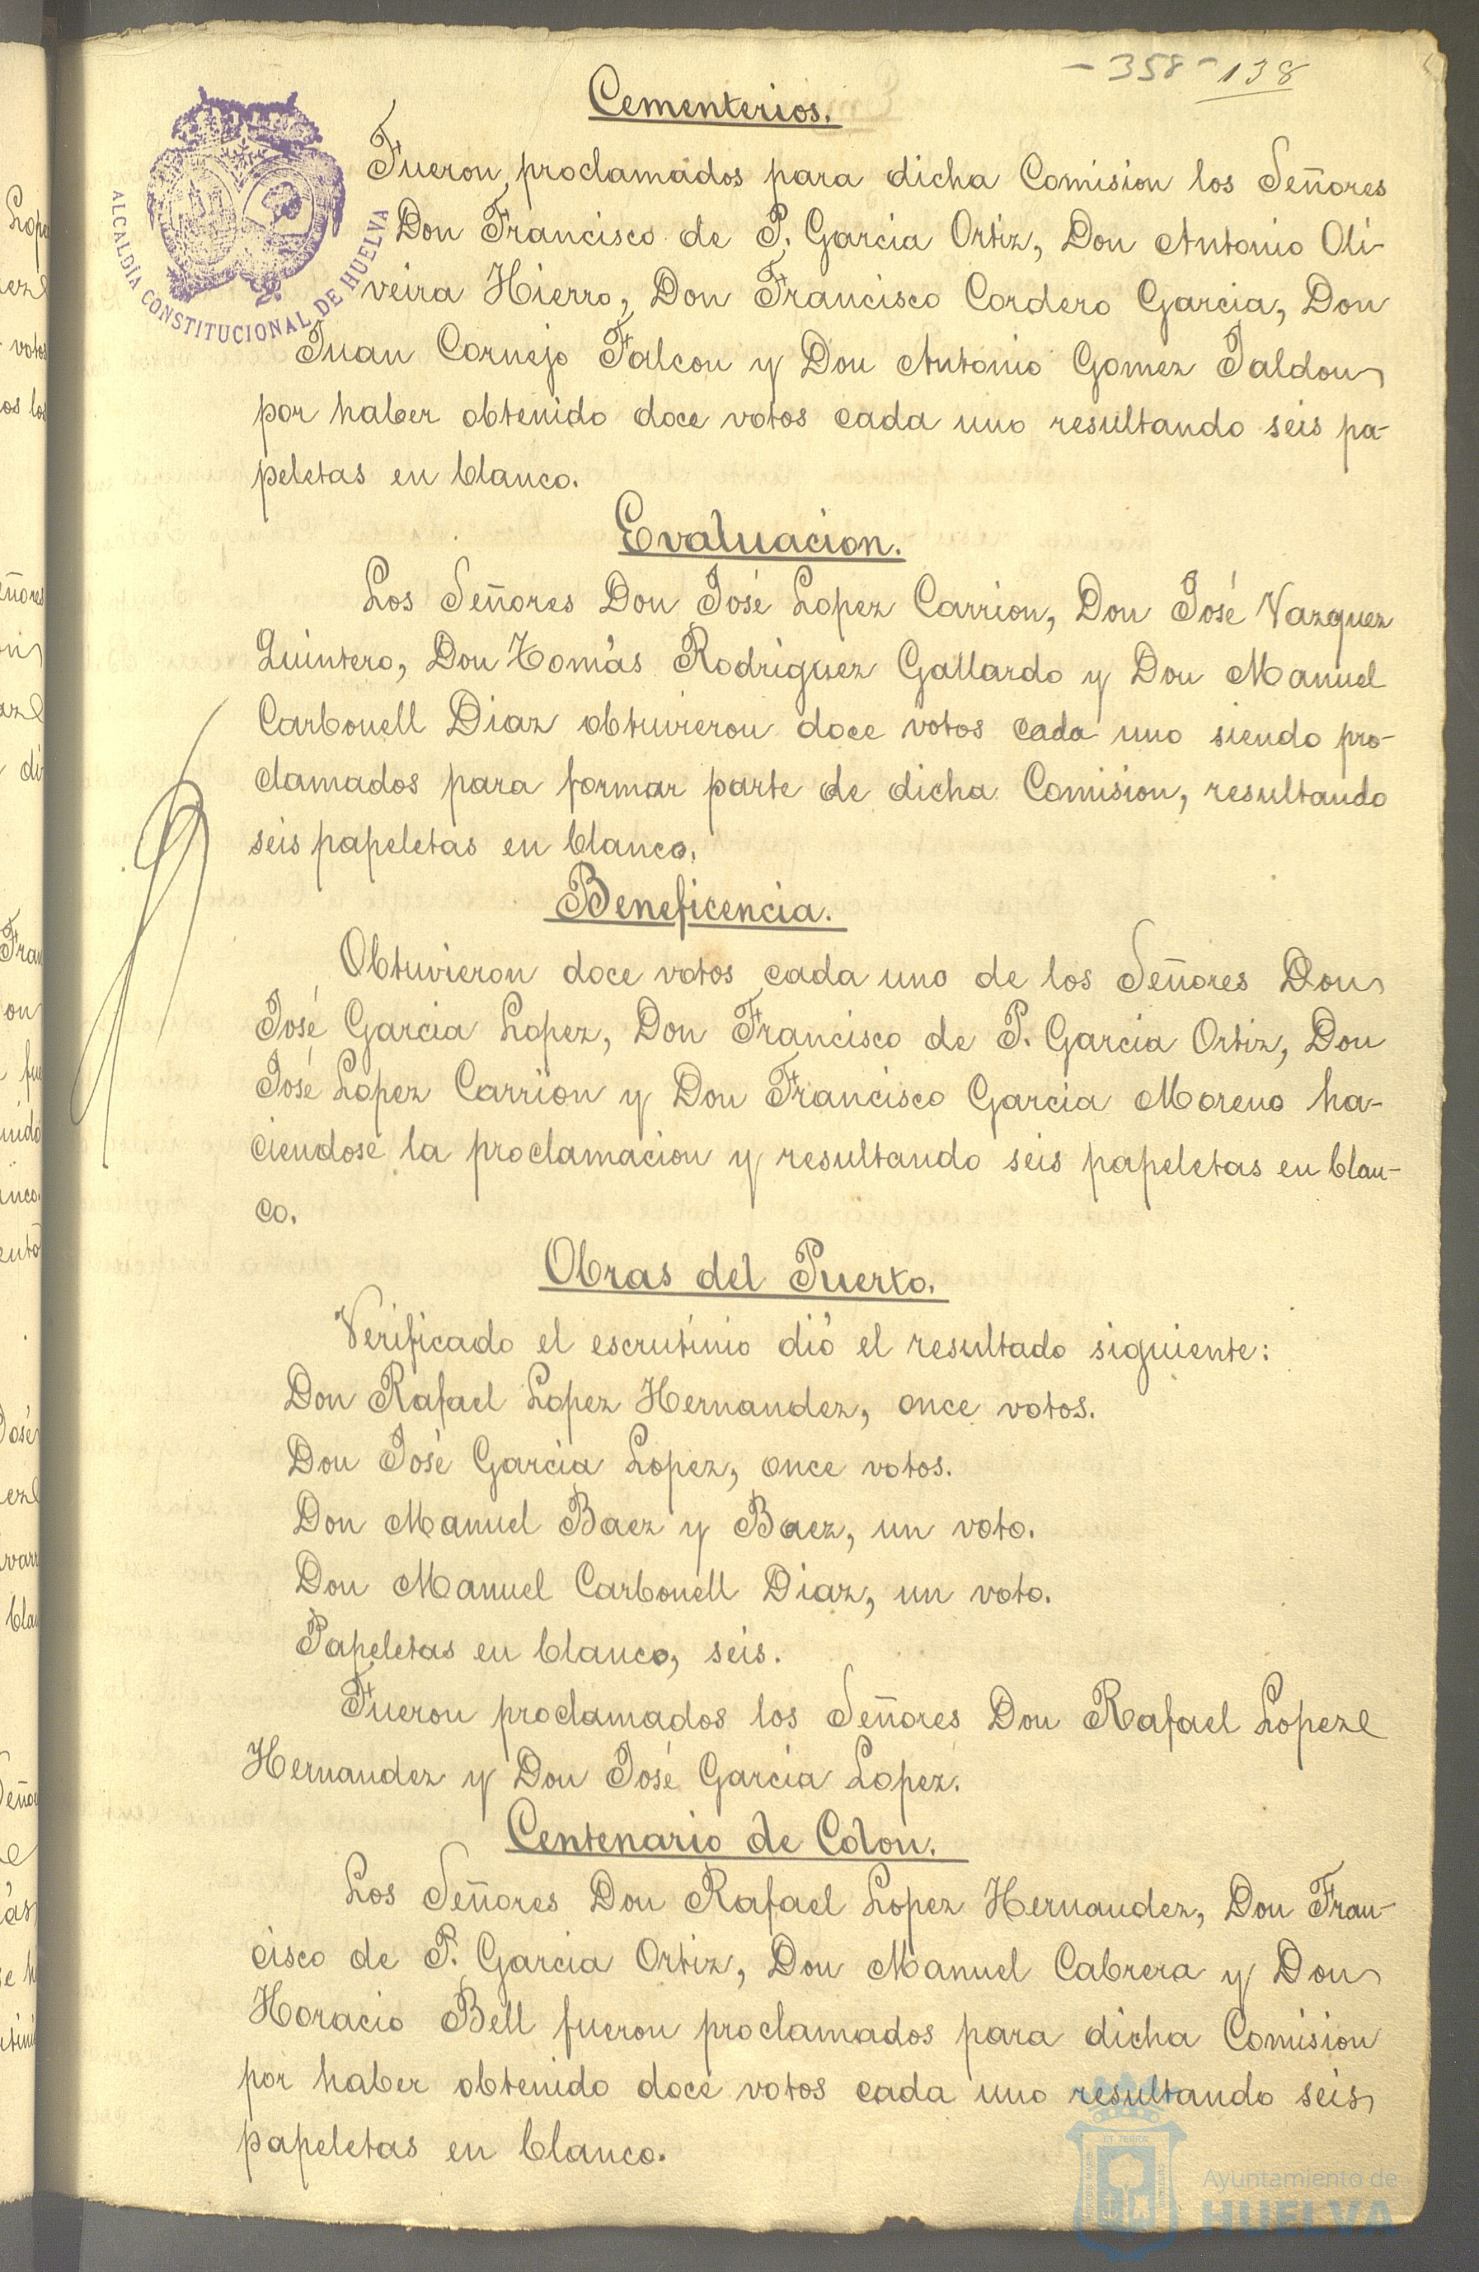 -358- 138
Cementerios.
ALCALDÍA CONSTITUCIONAL DE HUELVA
Fueron proclamados para dicha Comision los Señores
Don Francisco de P. Garcia Ortiz, Don Antonio Oli-
veira Hierro, Don Francisco Cordero Garcia, Don
Juan Cornejo Falcon y Don Antonio Gomez Jaldon
por haber obtenido doce votos cada uno resultando seis pa-
peletas en blanco.
Evaluacion.
Los Señores Don José Lopez Carrion, Don José Vazquez
Quintero, Don Tomás Rodriguez Gallardo y Don Manuel
Carbonell Diaz obtuvieron doce votos cada uno siendo pro-
clamados para formar parte de dicha Comision, resultando
seis papeletas en blanco.
Beneficencia.
Obtuvieron doce votos cada uno de los Señores Don
José Garcia Lopez, Don Francisco de P. Garcia Ortiz, Don
José Lopez Carrion y Don Francisco Garcia Moreno ha-
ciendose la proclamacion y resultando seis papeletas en blan-
co.
Obras del Puerto.
Verificado el escrutinio dió el resultado siguiente:
Don Rafael Lopez Hernandez, once votos.
Don José Garcia Lopez, once votos.
Don Manuel Baez y Baez, un voto.
Don Manuel Carbonell Diaz, un voto.
Papeletas en blanco, seis.
Fueron proclamados los Señores Don Rafael Lopez
Hernandez y Don José Garcia Lopez.
Centenario de Colon.
Los Señores Don Rafael Lopez Hernandez, Don Fran-
cisco de P. Garcia Ortiz, Don Manuel Cabrera y Don
Horacio Bell fueron proclamados para dicha Comision
por haber obtenido doce votos cada uno resultando seis
papeletas en blanco.
Ayuntamiento de
HUELVA